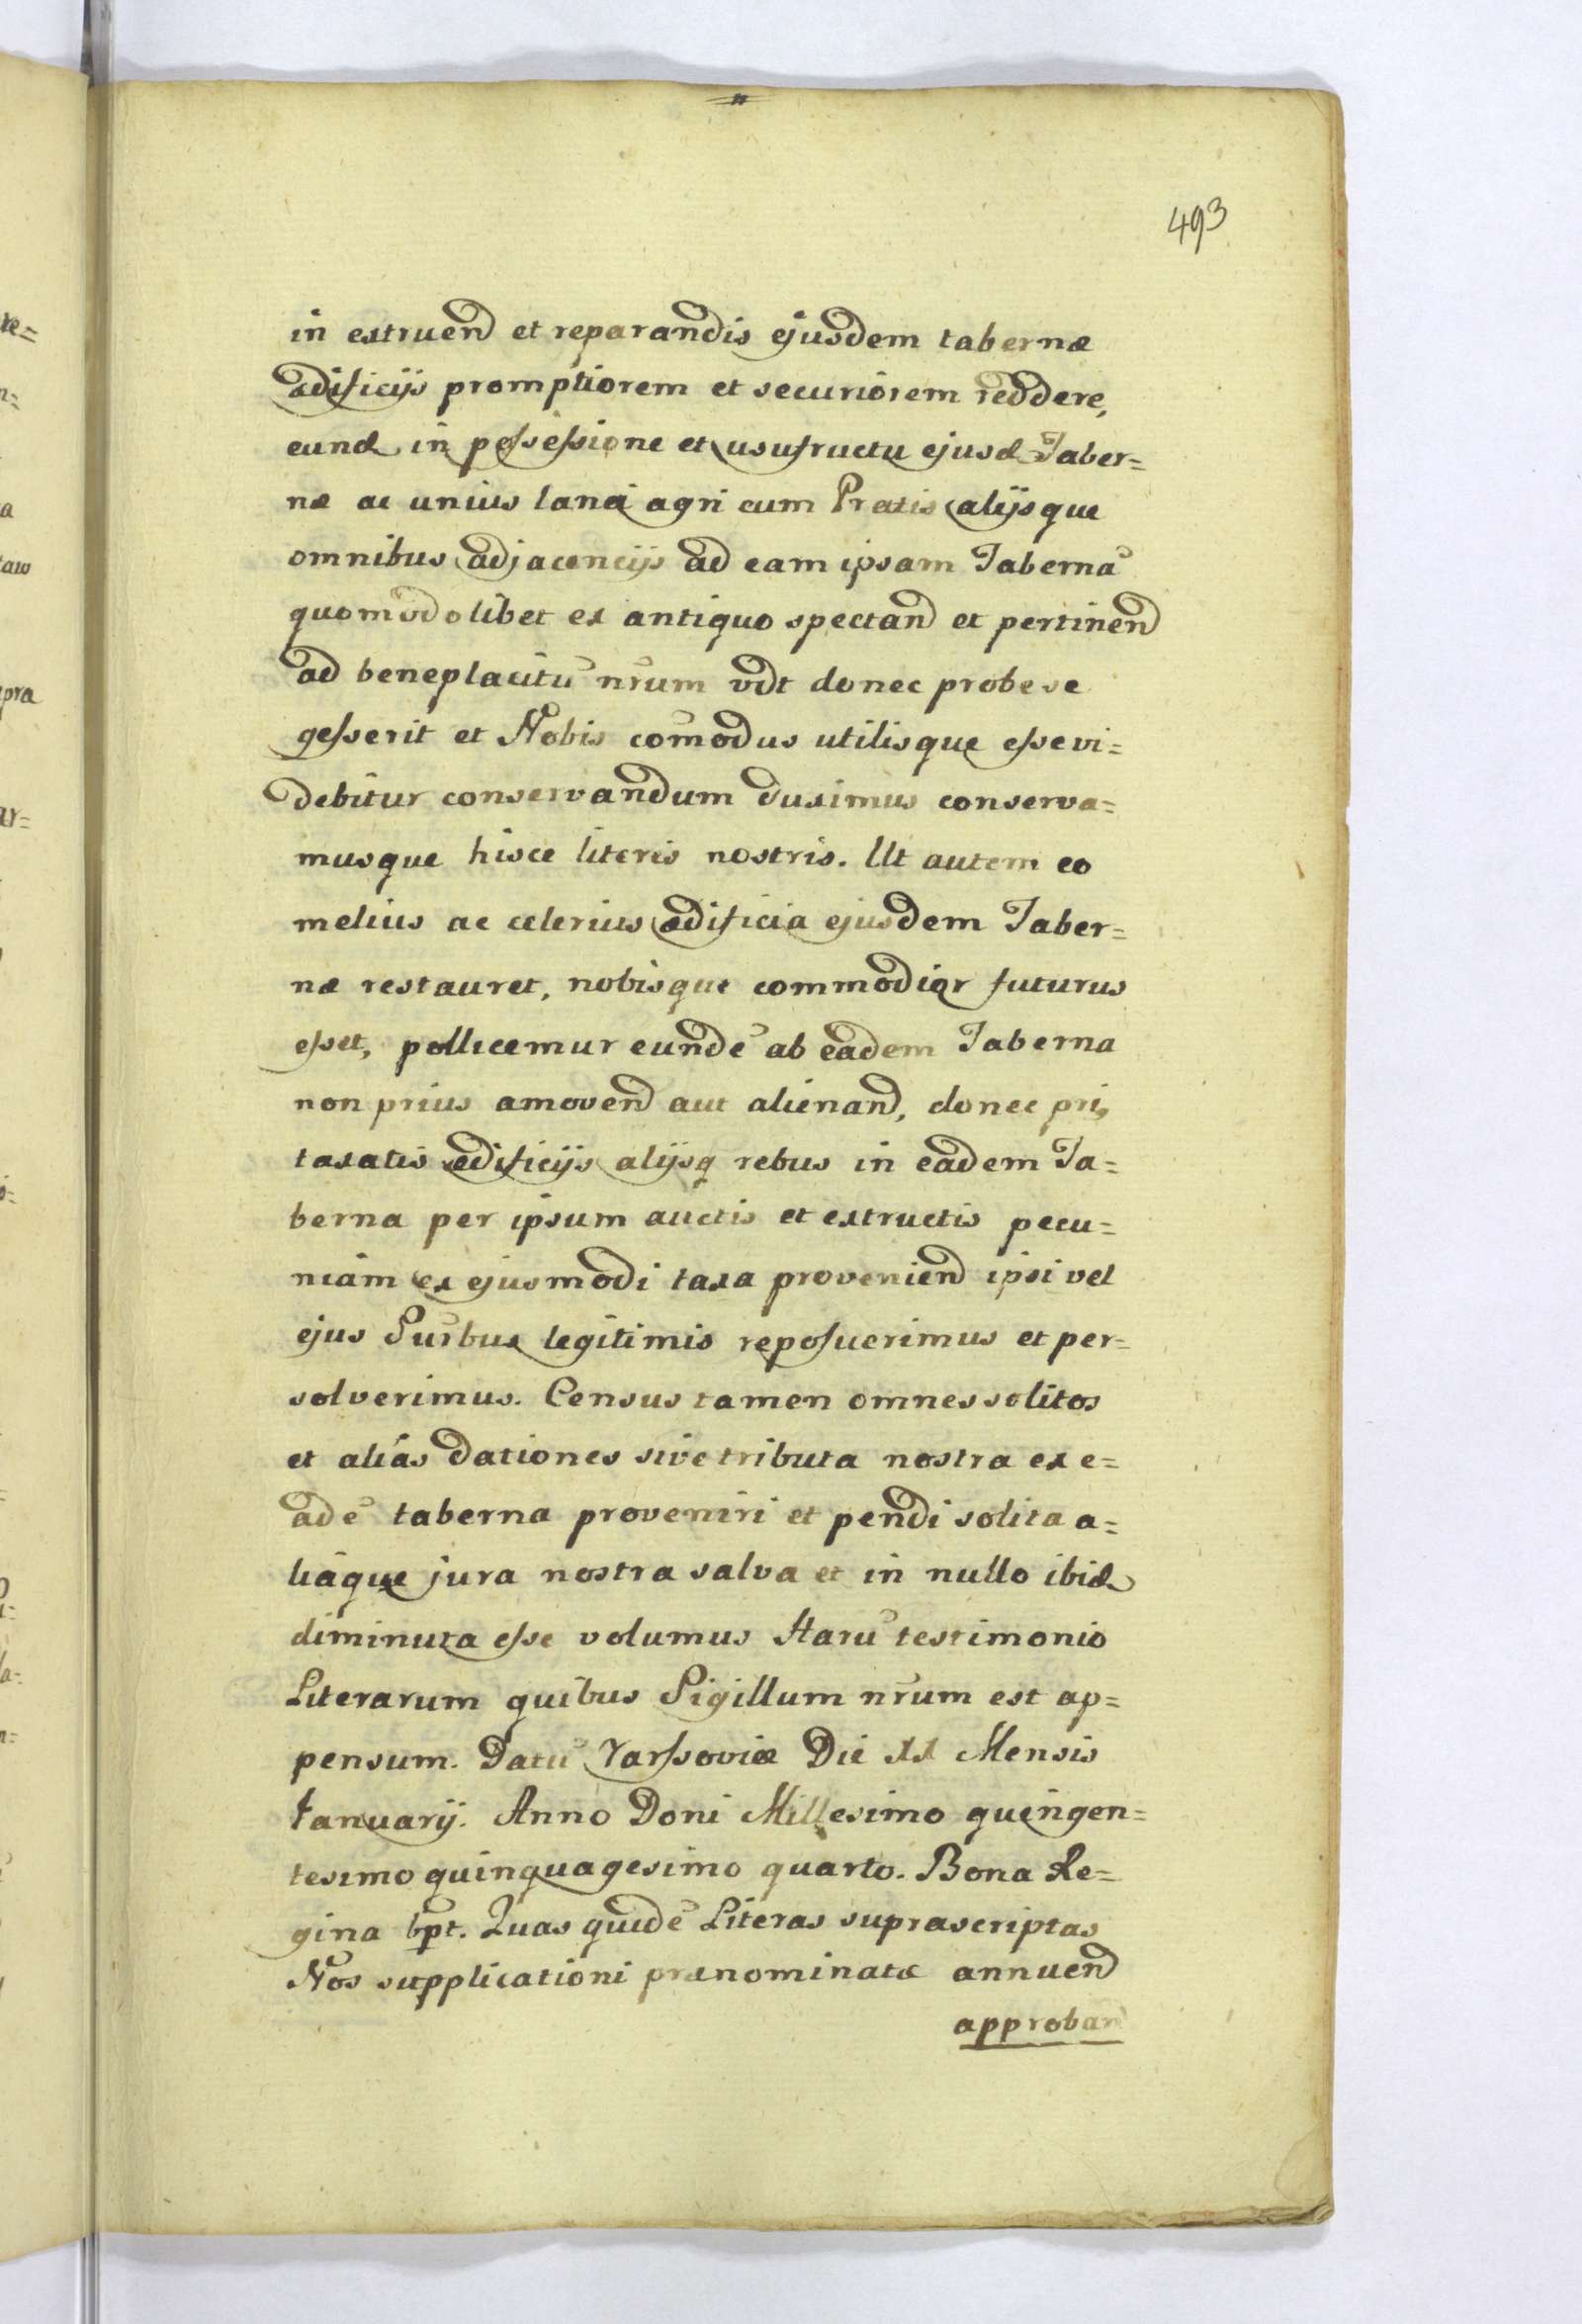 493
in extruend et reparandis ejusdem tabernæ
ædificijs promptiorem et securiorem reddere,
eund in possessione et usufructu ejusd Taber=
næ ac unius lanei agri cum Pratis alijsque
omnibus adjacencijs ad eam ipsam Tabernã
quomodolibet ex antiquo spectand et pertinend
ad beneplacitũ nrũm vdt donec probe se
gesserit et Nobis com̃odus utilisque esse vi=
debitur conservandum duximus conserva=
musque hisce literis nostris. Ut autem eo
melius ac celerius ædificia ejusdem Taber=
næ restauret, nobisque commodior futurus
esset, pollicemur eundẽ ab eadem Taberna
non prius amovend aut alienand, donec pri,
taxatis ædificijs alijsq rebus in eadem Ta=
berna per ipsum auctis et extructis pecu=
niam ex ejusmodi taxa proveniend ipsi vel
ejus Surbus legitimis reposuerimus et per=
solverimus. Census tamen omnes solitos
et alias dationes sive tributa nostra ex e=
adẽ taberna proveniri et pendi solita a=
liaque jura nostra salva et in nullo ibid
diminuta esse volumus Harũ testimonio
Literarum quibus Sigillum nrũm est ap=
pensum. Datũ Varssoviæ Die XX Mensis
Januarij. Anno Doni Millesimo quingen=
tesimo quinquagesimo quarto. Bona Re=
gina spt. Quas quidẽ Literas suprascriptas
Nos supplicationi prænominatæ annuend
approban